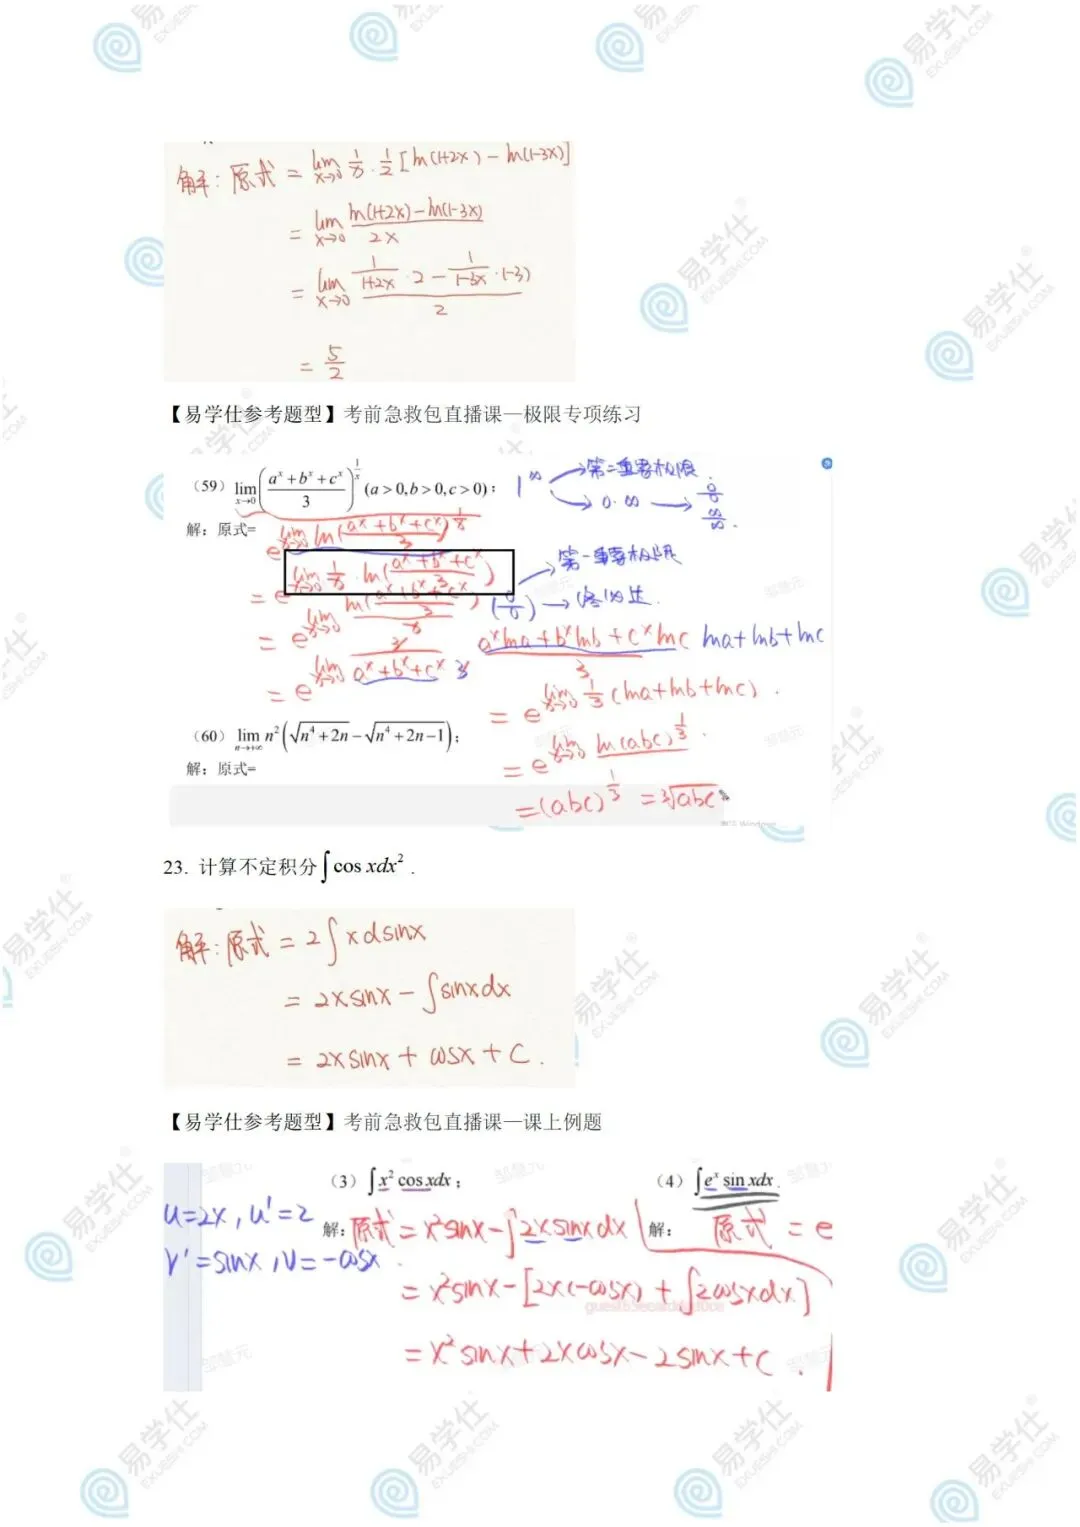 解：原式 = lim x→0 1/x · 1/2 [ln(1+2x) − ln(1−3x)]
= lim x→0 (ln(1+2x) − ln(1−3x)) / 2x
= lim x→0 (1/(1+2x) · 2 − 1/(1−3x) · (−3)) / 2
= 5/2
【易学仕参考题型】考前急救包直播课—极限专项练习
（59）lim x→0 ((aˣ+bˣ+cˣ)/3)^(1/x) (a>0,b>0,c>0)；
1^∞ → 第二重要极限
→ 0·∞ → 0/0 ∞/∞.
解：原式= e^(lim x→0 ln((aˣ+bˣ+cˣ)/3)^(1/x))
= e^(lim x→0 1/x · ln((aˣ+bˣ+cˣ)/3))
(0/0) → 第一重要极限
→ 洛必达.
= e^(lim x→0 ln((aˣ+bˣ+cˣ)/3) / x)
= e^(lim x→0 3/(aˣ+bˣ+cˣ) · (aˣlna+bˣlnb+cˣlnc)/3) lna+lnb+lnc
3
= e^(lim x→0 1/3 (lna+lnb+lnc)).
= e^(lim x→0 ln(abc)^(1/3)).
= (abc)^(1/3) = ³√abc
（60）lim n→+∞ n²(√(n⁴+2n) − √(n⁴+2n−1))；
解：原式=
23. 计算不定积分∫cos xdx².
解：原式 = 2∫xdsinx
= 2xsinx − ∫sinxdx
= 2xsinx + cosx + C.
【易学仕参考题型】考前急救包直播课—课上例题
（3）∫x² cos xdx；
（4）∫eˣ sin xdx.
u=2x, u'=2
v'=sinx, v=−cosx.
解：原式 = x²sinx − ∫2xsinxdx
解：原式 = e
= x²sinx − [2x(−cosx) + ∫2cosxdx]
= x²sinx + 2xcosx − 2sinx + C.
易学仕
EXUESHI.COM
邹慧元